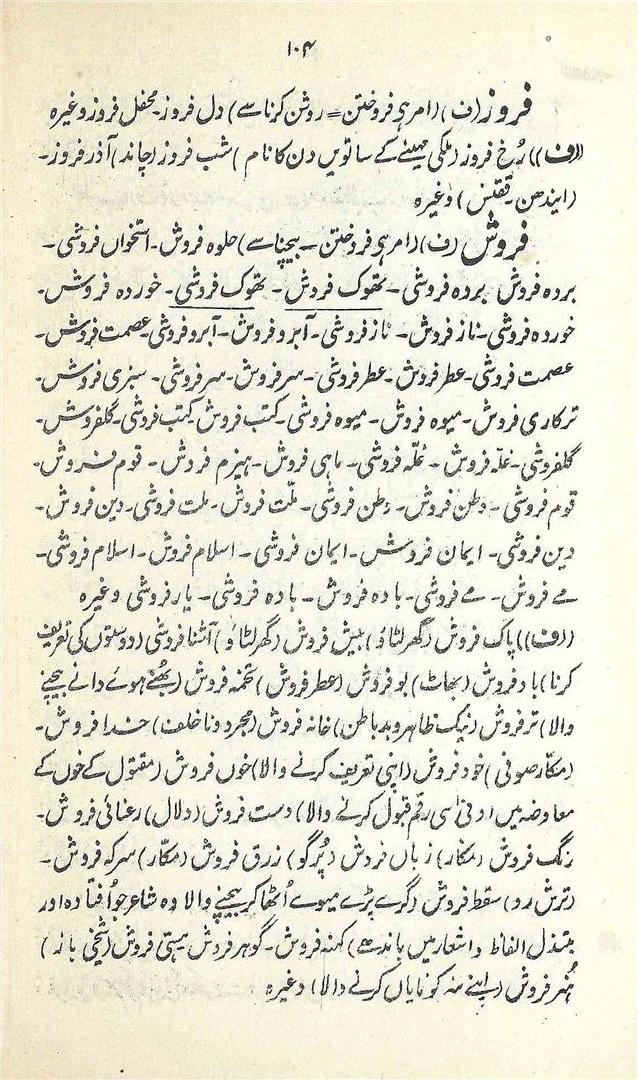 ۱۰۴
فروز (ف) (امر ہو فروختن = روشن کرنا سے) دل فروز۔ محفل فروز وغیرہ
((ف)) رُخ فروز (ملکی مہینے کے ساتویں دن کا نام) شب فروز (چاند) آذر فروز۔
(ایندھن۔ ققنس) وغیرہ
فروش (ف) (امر ہو فروختن۔ بیچنا سے) حلوہ فروش۔ استخواں فروشی۔
بردہ فروش بردہ فروشی۔ تھوک فروش۔ تھوک فروشی۔ خوردہ فروش۔
خوردہ فروشی۔ ناز فروش۔ ناز فروشی۔ آبرو فروش۔ آبرو فروشی۔ عصمت فروش۔
عصمت فروشی۔ عطر فروش۔ عطر فروشی۔ سر فروش۔ سر فروشی۔ سبزی فروش۔
ترکاری فروش۔ میوہ فروش۔ میوہ فروشی۔ کتب فروش۔ کتب فروشی۔ گلفروش۔
گلفروشی۔ غلّہ فروش۔ غلّہ فروشی۔ ماہی فروش۔ ہیزم فروش۔ قوم فروش۔
قوم فروشی۔ وطن فروش۔ وطن فروشی۔ ملّت فروش۔ ملت فروشی۔ دین فروش۔
دین فروشی۔ ایمان فروش۔ ایمان فروشی۔ اسلام فروش۔ اسلام فروشی۔
مے فروش۔ مے فروشی۔ بادہ فروش۔ بادہ فروشی۔ یار فروشی وغیرہ
((ف)) پاک فروش (گھر لٹاؤ) بیش فروش (گھر لٹاؤ) آشنا فروشی (دوستوں کی تعریف
کرنا) باد فروش (بھاٹ) بو فروش (عطر فروش) تخمہ فروش (بھُنے ہوئے دانے بیچنے
والا) تر فروش (نیک ظاہر و بد باطن) خانہ فروش (مجرد و ناخلف) خدا فروش۔
(مکّار صوفی) خود فروش (اپنی تعریف کرنے والا) خوں فروش (مقتول کے خوں کے
معاوضہ میں ادنیٰ سی رقم قبول کرنے والا) دست فروش (دلال) رعنائی فروش۔
رنگ فروش (مکار) زباں فروش (پُرگو) زرق فروش (مکّار) سرکہ فروش۔
(ترش رو) سقط فروش (گرے پڑے میوے اُٹھا کر بیچنے والا وہ شاعر جو اُفتادہ اور
مبتذل الفاظ و اشعار میں باندھے) کہنہ فروش۔ گوہر فروش ہستی فروش (شیخی باز)
ہُنر فروش (اپنے ہنر کو نمایاں کرنے والا) وغیرہ